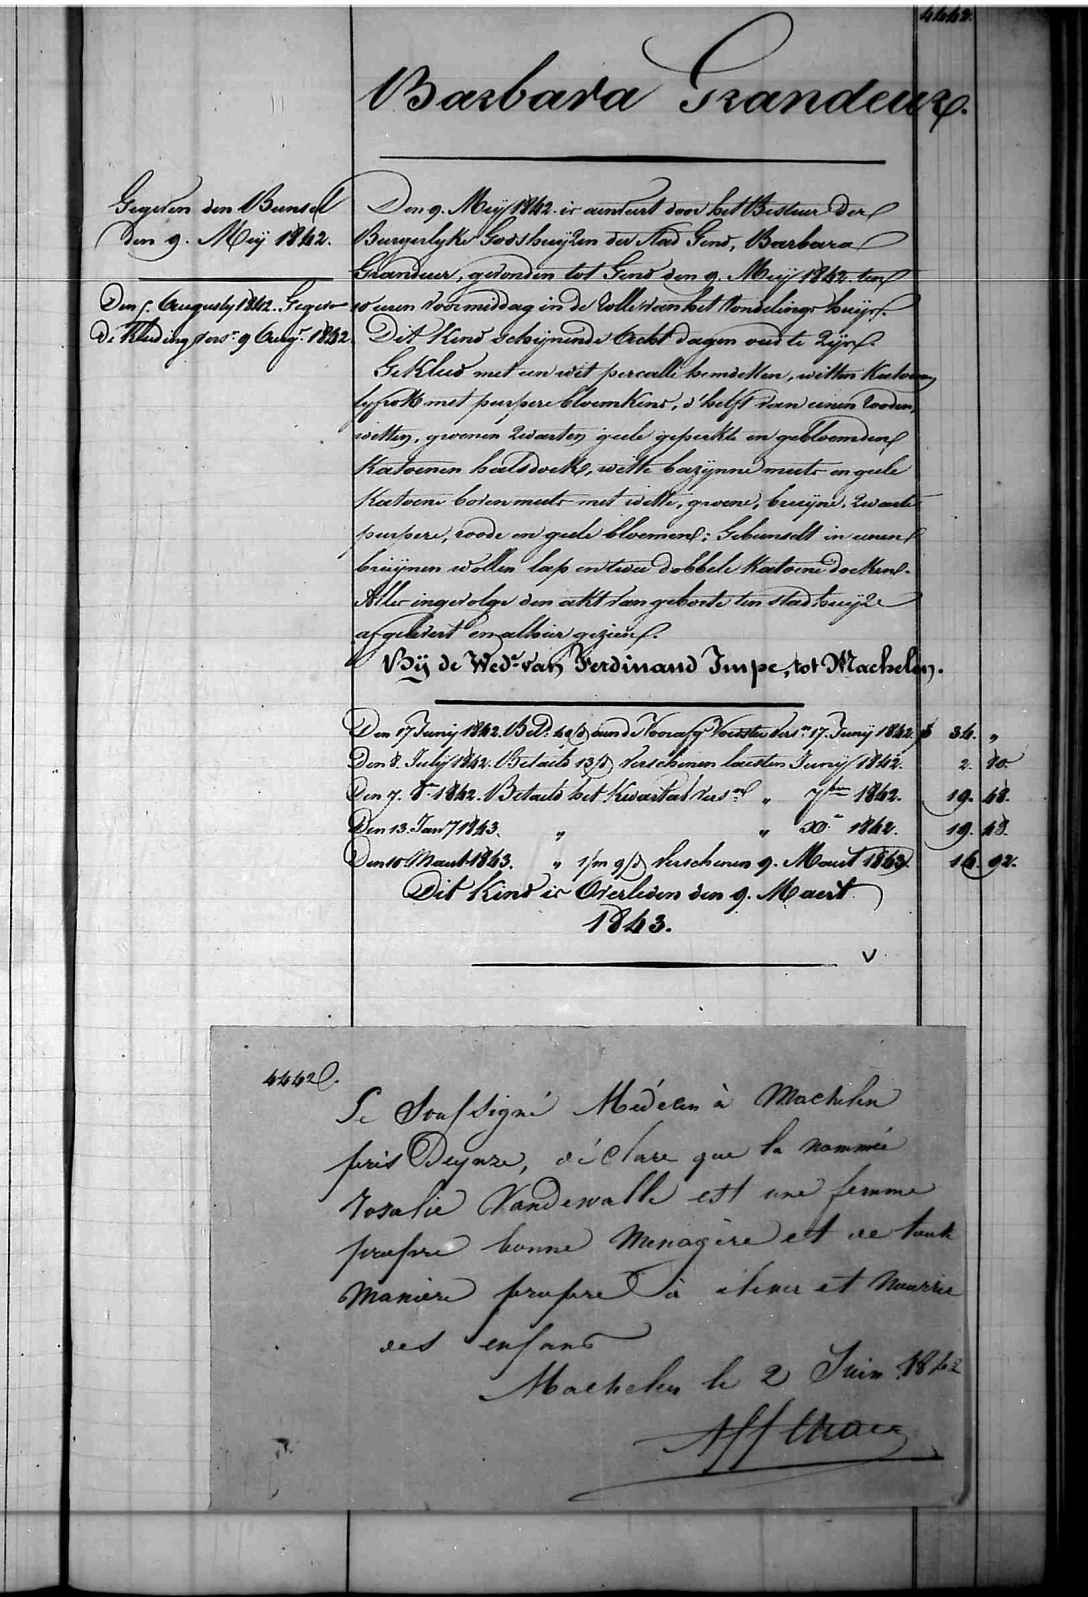 4442.
Barbara Grandeur.
Gegeven den Bunsel
den 9. Meij 1842.
Den 5. Augusty 1842. Gegeven
de Kleeding vers. 9 Augt. 1842.
Den 9. Meij 1842. is aenveirt door het Bestuer der
Burgerlyke Godshuijzen der stad Gend, Barbara
Grandeur, gevonden tot Gend den 9. Meij 1842. ten
10 uren voormiddag in de Rolle van het Vondelings huijs.
Dit Kind schijnende Acht dagen oud te zijn.
Gekleed met een wit percalle hemdeken, witten Katoenen
lyfrok met purpere bloemkens, d'helft van eenen rooden,
witten, groenen zwarten geele geperkte en gebloemden
Katoenen halsdoek, witte bazijnne muts en geele
Katoene bovenmuts met witte, groene, bruijne, zwarte
purpere, roode en geele bloemen; Gebunselt in eenen
bruijnen wollen lap en twee dobbele Katoene doeken.
Alles ingevolge den akt van geborte ten stadhuijze
afgelevert en alhier gezien.
Bij de Wede. van Ferdinand Impe, tot Machelen.
Den 17 Junij 1842. Bet. aen de Voorsten vers. 17. Junij 1842. 34. "
Den 8. Julij 1842. Betaeld 13/d verschenen laesten Junij 1842. 2. 80
Den 7. 8. 1842. Betaeld het Kwartael vers. " 7ber 1842. 19. 48.
Den 13. Jany 1843. " " Xr. 1842. 19. 48.
Den 10 Maert 1843. " 1/m 9/d verschenen 9. Maert 1843. 14. 92.
Dit Kind is Overleden den 9. Maert
1843.
V
4442
Le Soussigné Médecin à Machelen
près Deynze, déclare que la nommée
Rosalie Vandewalle est une femme
propre bonne Menagère et de toute
manière propre à élever et nourrir
des enfans
Machelen le 2 Juin 1842